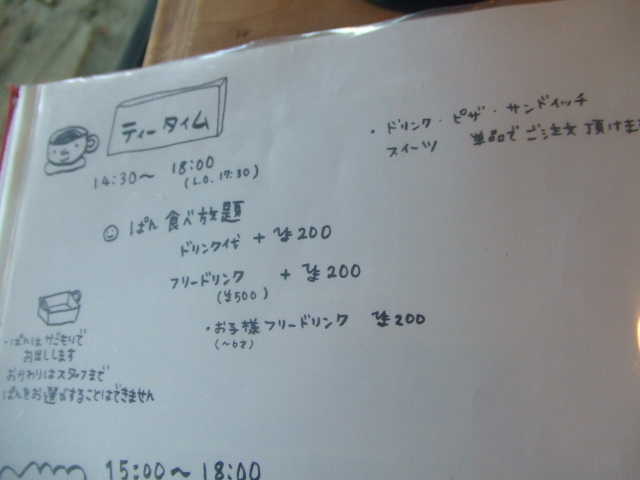 ティータイム
14:30〜 18:00
(L.O. 17:30)
・ドリンク・ピザ・サンドイッチ
スイーツ 単品でご注文頂けま
ぱん 食べ放題
ドリンク代 + ¥200
フリードリンク + ¥200
(¥500)
・お子様フリードリンク ¥200
(〜6才)
・ぱんはかごもりで
お出しします
おかわりはスタッフまで
ぱんをお選びすることはできません
15:00〜18:00